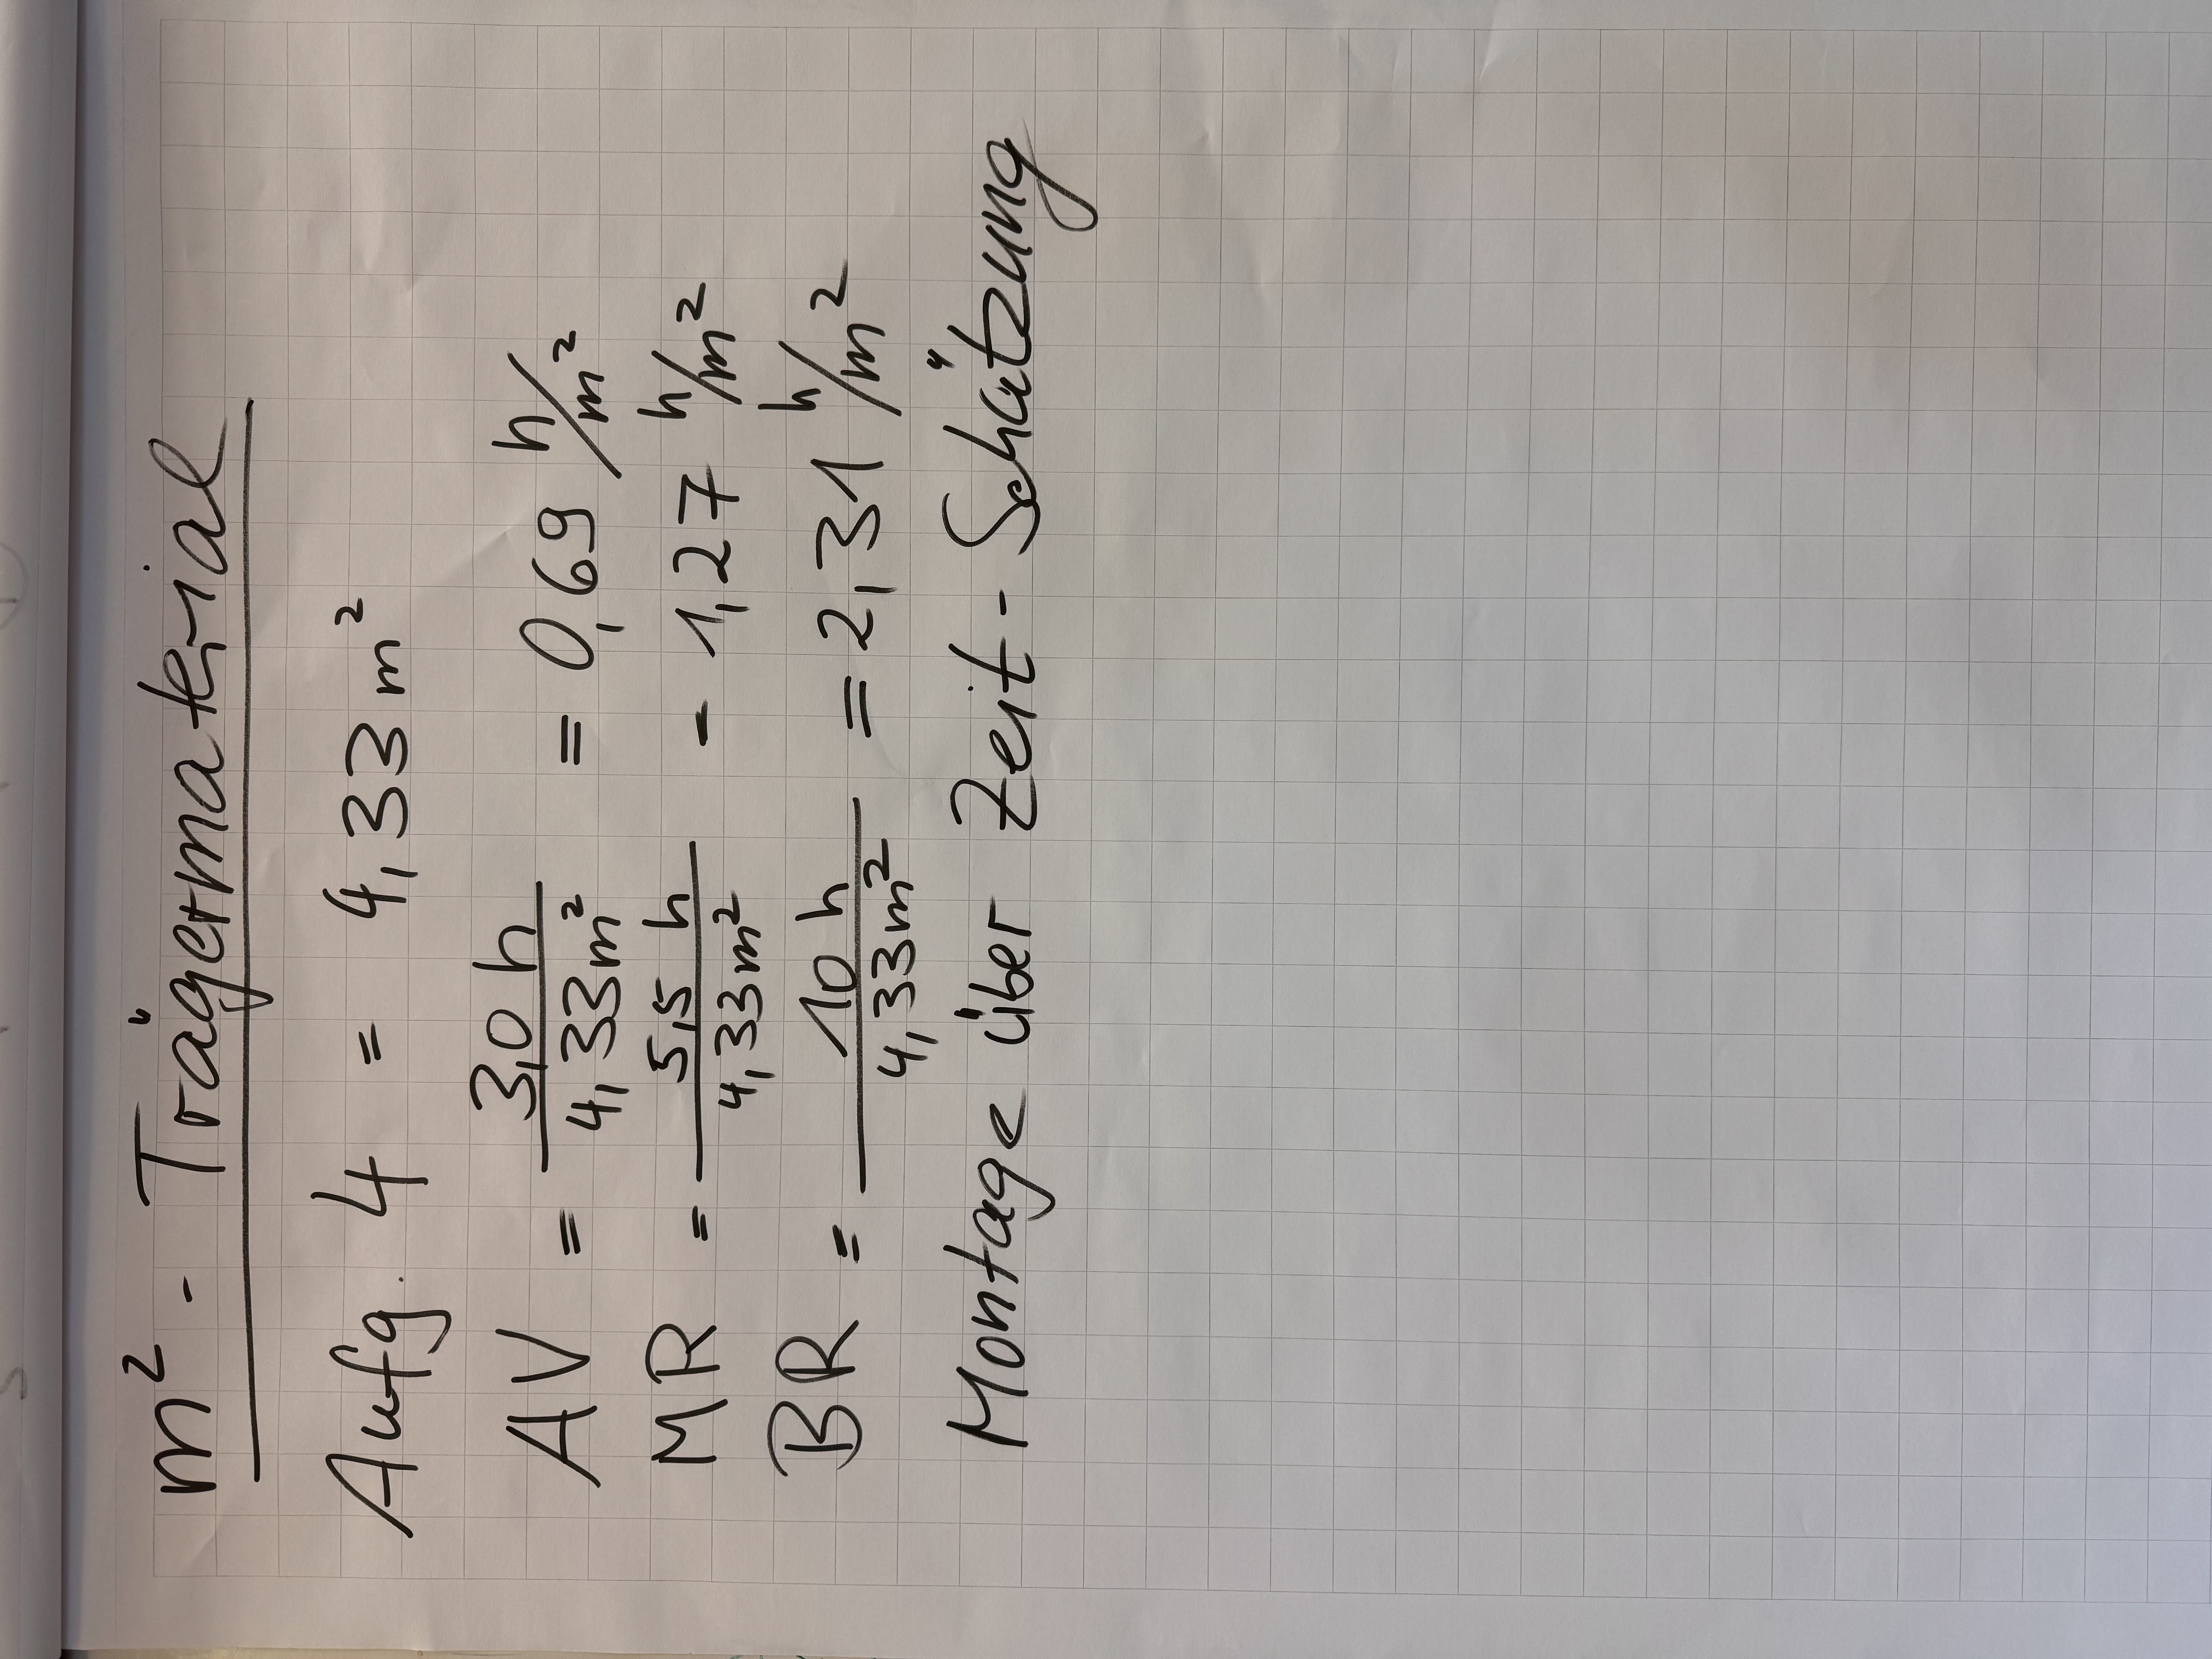 m² - Trägermaterial
Aufg. 4 = 4,33 m²
AV = 3,0 h / 4,33 m² = 0,69 h/m²
MR = 5,5 h / 4,33 m² - 1,27 h/m²
BR = 10 h / 4,33 m² = 2,31 h/m²
Montage über Zeit-Schätzung